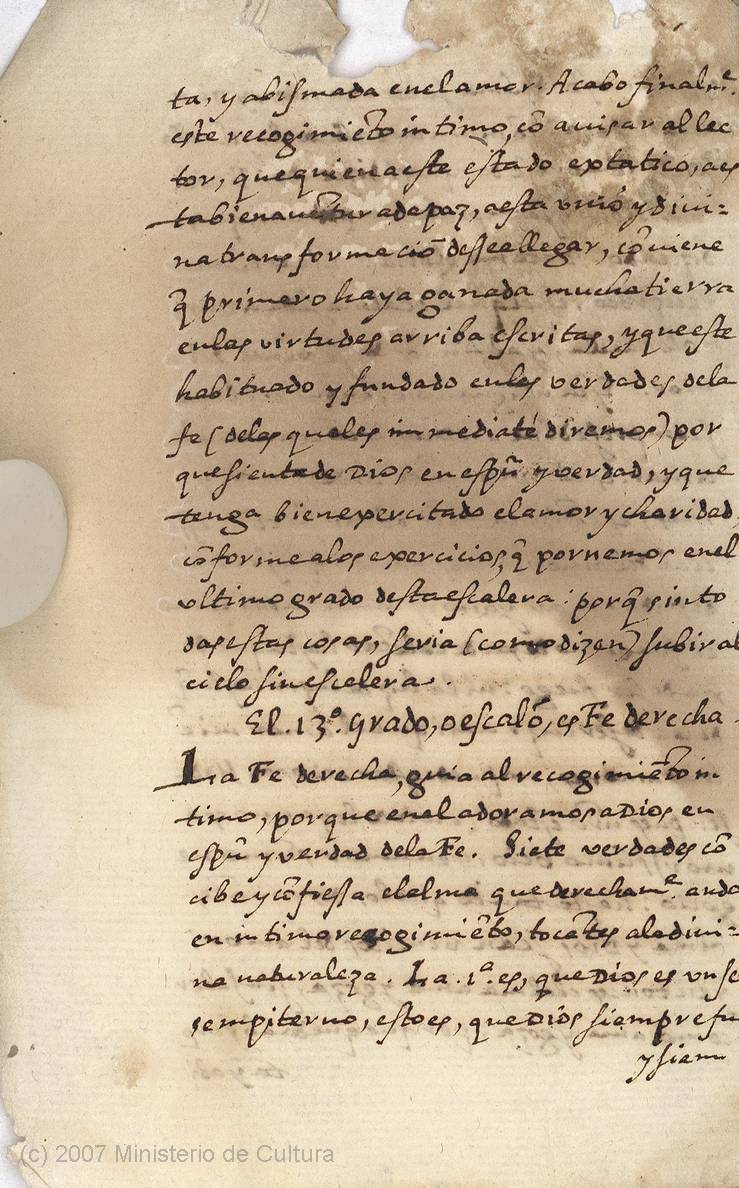 ta, y abismada en el amor. Acabo finalmᵉ.
este recogimiẽto intimo, cõ avisar al lec
tor, que quien a este estado extatico, a es
ta bienaventurade paz, a esta vniõ y divi-
na transformaciõ dessea llegar, cõviene
q̃ primero haya ganada mucha tierra
en las virtudes arriba escritas, y que este
habituado y fundado en las verdades de la
fe (de las quales immediatẽ diremos) por
que sienta de Dios en espũ y verdad, y que
tenga bien exercitado el amor y charidad,
cõforme a los exercicios, q̃ pornemos en el
vltimo grado desta escalera: porq̃ sin to
das estas cosas, seria (como dizen) subir al
cielo sin escalera.
El. 13º. grado, o escalõ, es Fe derecha.
La Fe derecha, guia al recogimiẽto in
timo, porque en el adoramos a Dios en
espũ y verdad de la Fe. Siete verdades cõ
cibe y cõfiessa el alma que derechamᵉ. anda
en intimo recogimiẽto, tocãtes a la divi-
na naturaleza. La .1ª. es, que Dios es vn se
sempiterno, esto es, que Dios siempre fu
y siem
(c) 2007 Ministerio de Cultura